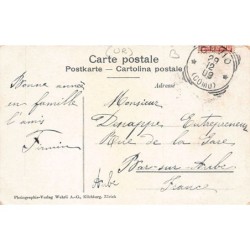 (UR)
Carte postale
Postkarte - Cartolina postale
Adresé
29
12
09
(COMO)
Bonne année
en famille
l'ami
Firmin
Monsieur
Entrepreneur
Rue de la Gare
Bar-sur-Aube
Aube
France
Photographie-Verlag Wehrli A.-G., Kilchberg, Zürich